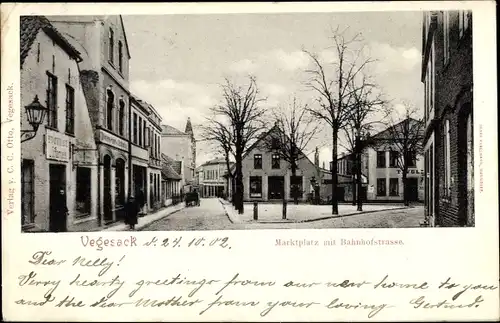 Verlag v. C. C. Otto, Vegesack.
TIVOLI
Vegesack d. 24. 10. 02
Marktplatz mit Bahnhofstrasse.
Dear Nelly!
Very hearty greetings from our new home to you
and the dear Mother from your loving Gertrud.